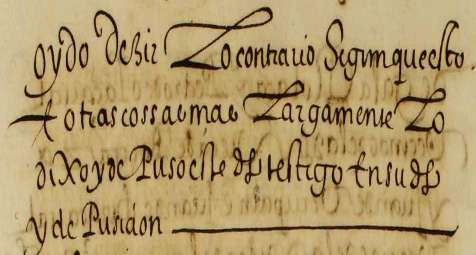 oydo dezir Lo contrario Segun que esto
& otras cossas mas Largamente Lo
dixo y depuso este dho testigo En su dho
y depusiçion